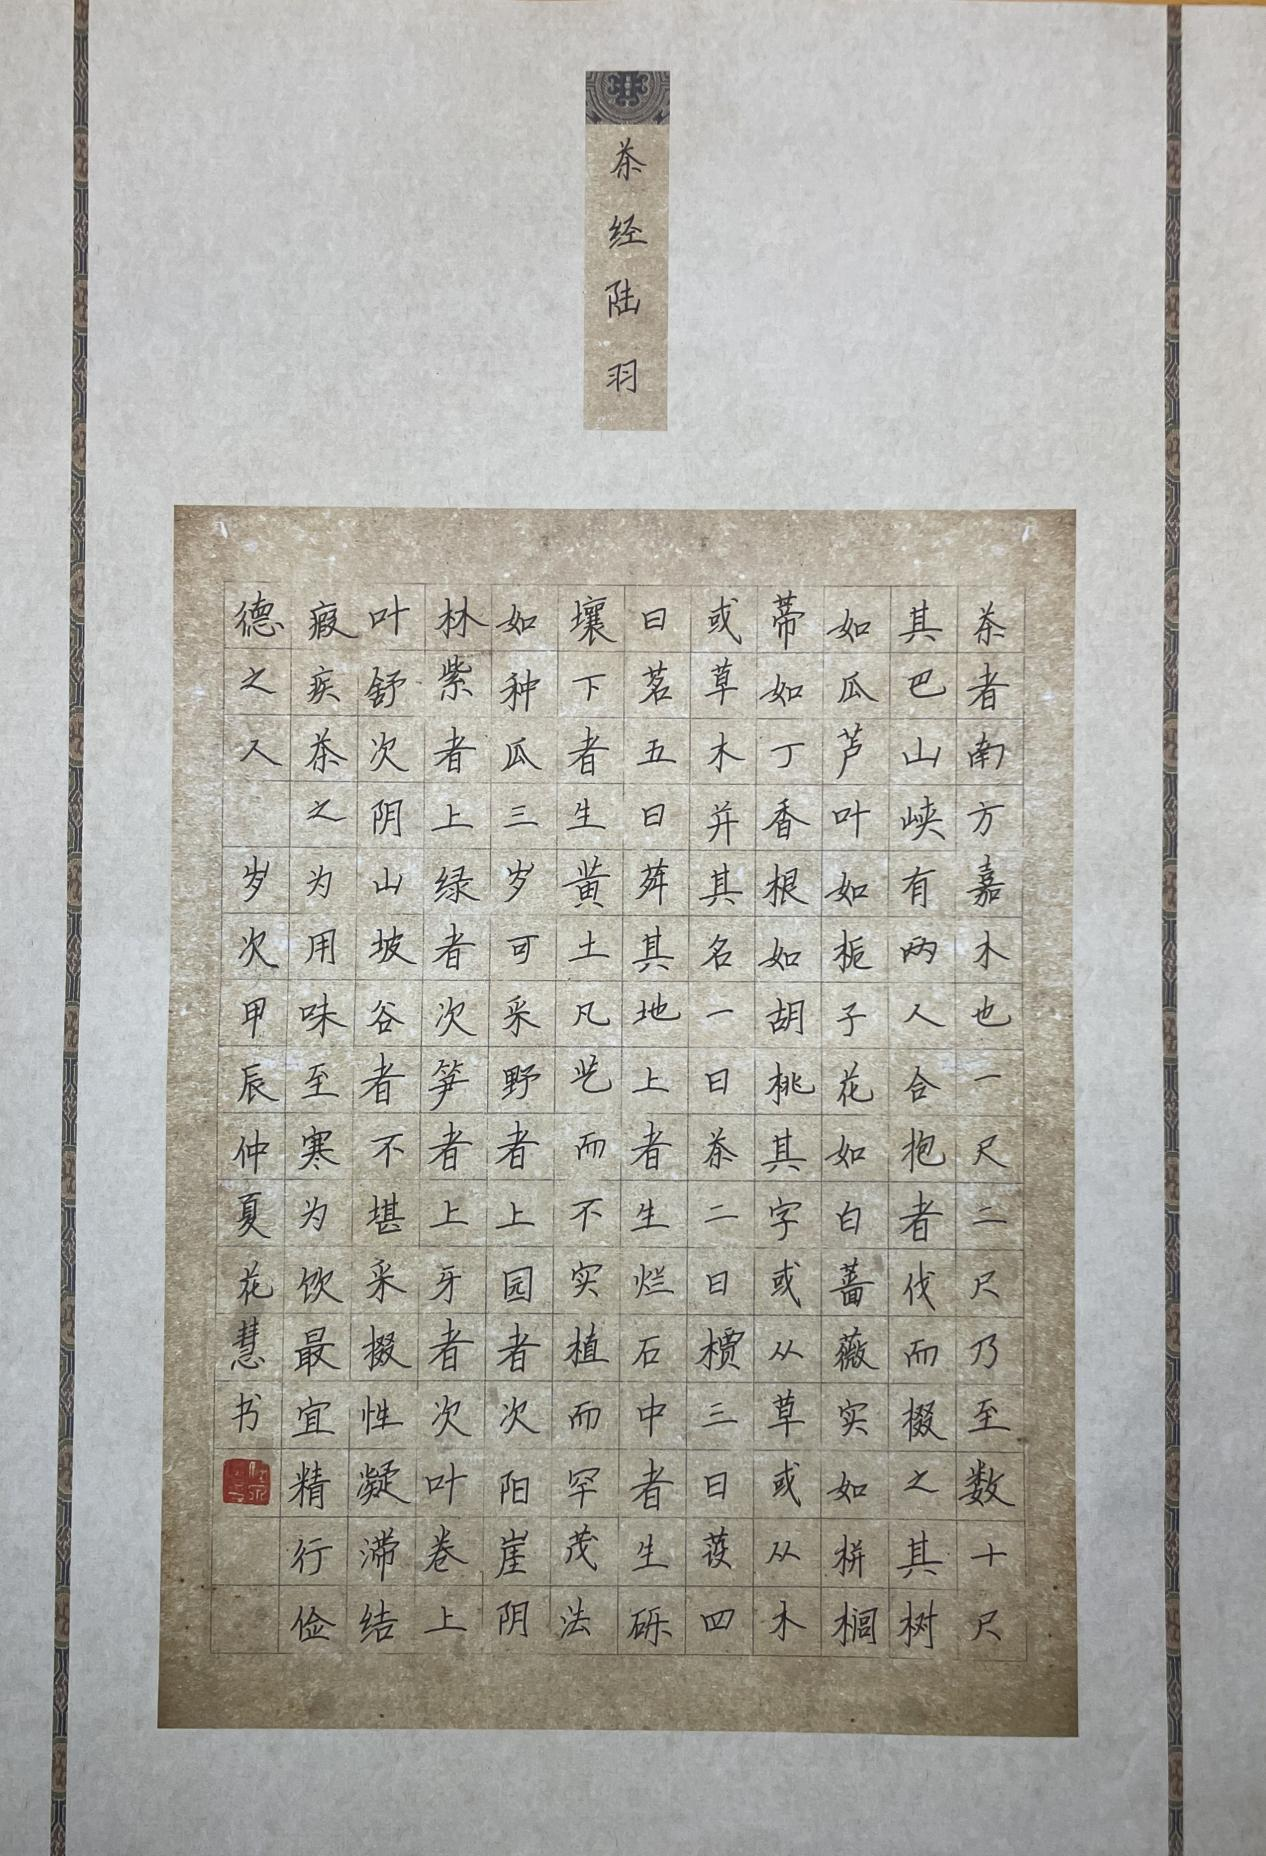 茶经陆羽
茶者南方嘉木也一尺二尺乃至数十尺
其巴山峡有两人合抱者伐而掇之其树
如瓜芦叶如栀子花如白蔷薇实如栟榈
蒂如丁香根如胡桃其字或从草或从木
或草木并其名一曰茶二曰槚三曰蔎四
曰茗五曰荈其地上者生烂石中者生砾
壤下者生黄土凡艺而不实植而罕茂法
如种瓜三岁可采野者上园者次阳崖阴
林紫者上绿者次笋者上牙者次叶卷上
叶舒次阴山坡谷者不堪采掇性凝滞结
瘕疾茶之为用味至寒为饮最宜精行俭
德之人 岁次甲辰仲夏花慧书